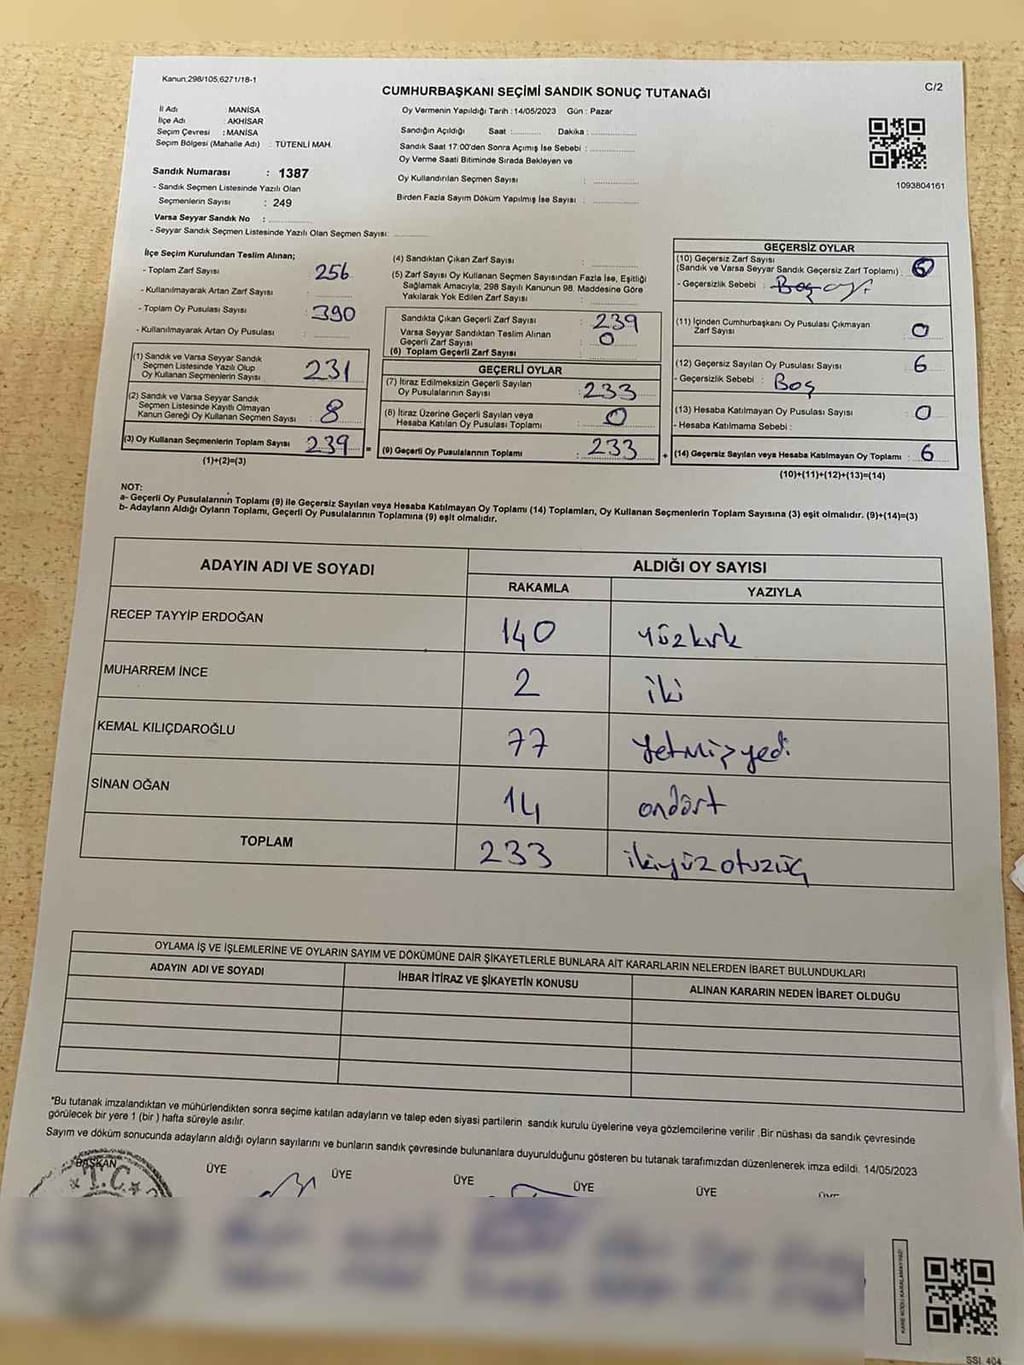 Kanun:298/105,6271/18-1
CUMHURBAŞKANI SEÇİMİ SANDIK SONUÇ TUTANAĞI
C/2
İl Adı MANİSA
İlçe Adı : AKHİSAR
Seçim Çevresi : MANİSA
Seçim Bölgesi (Mahalle Adı) : TÜTENLİ MAH.
Oy Vermenin Yapıldığı Tarih : 14/05/2023 Gün : Pazar
Sandığın Açıldığı Saat :........... Dakika :................
Sandık Saat 17:00'den Sonra Açımış İse Sebebi :................
Oy Verme Saati Bitiminde Sırada Bekleyen ve
Oy Kullandırılan Seçmen Sayısı :................
Birden Fazla Sayım Döküm Yapılmış İse Sayısı :................
1093804161
Sandık Numarası : 1387
- Sandık Seçmen Listesinde Yazılı Olan
Seçmenlerin Sayısı : 249
Varsa Seyyar Sandık No :................
- Seyyar Sandık Seçmen Listesinde Yazılı Olan Seçmen Sayısı:............
İlçe Seçim Kurulundan Teslim Alınan;
- Toplam Zarf Sayısı : 256
- Kullanılmayarak Artan Zarf Sayısı :
- Toplam Oy Pusulası Sayısı : 390
- Kullanılmayarak Artan Oy Pusulası :
(1) Sandık ve Varsa Seyyar Sandık
Seçmen Listesinde Yazılı Olup
Oy Kullanan Seçmenlerin Sayısı : 231
(2) Sandık ve Varsa Seyyar Sandık
Seçmen Listesinde Kayıtlı Olmayan
Kanun Gereği Oy Kullanan Seçmen Sayısı : 8
(3) Oy Kullanan Seçmenlerin Toplam Sayısı : 239
(1)+(2)=(3)
(4) Sandıktan Çıkan Zarf Sayısı :
(5) Zarf Sayısı Oy Kullanan Seçmen Sayısından Fazla İse, Eşitliği
Sağlamak Amacıyla, 298 Sayılı Kanunun 98. Maddesine Göre
Yakılarak Yok Edilen Zarf Sayısı :
Sandıkta Çıkan Geçerli Zarf Sayısı : 239
Varsa Seyyar Sandıktan Teslim Alınan
Geçerli Zarf Sayısı : 0
(6) Toplam Geçerli Zarf Sayısı :
GEÇERLİ OYLAR
(7) İtiraz Edilmeksizin Geçerli Sayılan
Oy Pusulalarının Sayısı : 233
(8) İtiraz Üzerine Geçerli Sayılan veya
Hesaba Katılan Oy Pusulası Toplamı : 0
= (9) Geçerli Oy Pusulalarının Toplamı : 233
GEÇERSİZ OYLAR
(10) Geçersiz Zarf Sayısı
(Sandık ve Varsa Seyyar Sandık Geçersiz Zarf Toplamı) :
- Geçersizlik Sebebi : Boş
(11) İçinden Cumhurbaşkanı Oy Pusulası Çıkmayan
Zarf Sayısı : 0
(12) Geçersiz Sayılan Oy Pusulası Sayısı : 6
- Geçersizlik Sebebi : Boş
(13) Hesaba Katılmayan Oy Pusulası Sayısı : 0
- Hesaba Katılmama Sebebi :
+ (14) Geçersiz Sayılan veya Hesaba Katılmayan Oy Toplamı : 6
(10)+(11)+(12)+(13)=(14)
NOT:
a- Geçerli Oy Pusulalarının Toplamı (9) ile Geçersiz Sayılan veya Hesaba Katılmayan Oy Toplamı (14) Toplamları, Oy Kullanan Seçmenlerin Toplam Sayısına (3) eşit olmalıdır. (9)+(14)=(3)
b- Adayların Aldığı Oyların Toplamı, Geçerli Oy Pusulalarının Toplamına (9) eşit olmalıdır.
ADAYIN ADI VE SOYADI
ALDIĞI OY SAYISI
RAKAMLA YAZIYLA
RECEP TAYYİP ERDOĞAN 140 yüzkırk
MUHARREM İNCE 2 iki
KEMAL KILIÇDAROĞLU 77 yetmişyedi
SİNAN OĞAN 14 ondört
TOPLAM 233 ikiyüzotuzüç
OYLAMA İŞ VE İŞLEMLERİNE VE OYLARIN SAYIM VE DÖKÜMÜNE DAİR ŞİKAYETLERLE BUNLARA AİT KARARLARIN NELERDEN İBARET BULUNDUKLARI
ADAYIN ADI VE SOYADI İHBAR İTİRAZ VE ŞİKAYETİN KONUSU ALINAN KARARIN NEDEN İBARET OLDUĞU
"Bu tutanak imzalandıktan ve mühürlendikten sonra seçime katılan adayların ve talep eden siyasi partilerin sandık kurulu üyelerine veya gözlemcilerine verilir .Bir nüshası da sandık çevresinde
görülecek bir yere 1 (bir ) hafta süreyle asılır.
Sayım ve döküm sonucunda adayların aldığı oyların sayılarını ve bunların sandık çevresinde bulunanlara duyurulduğunu gösteren bu tutanak tarafımızdan düzenlenerek imza edildi. 14/05/2023
BAŞKAN ÜYE ÜYE ÜYE ÜYE ÜYE
T.C.
KARE KODU KARALAMAYINIZ!
SSL 404